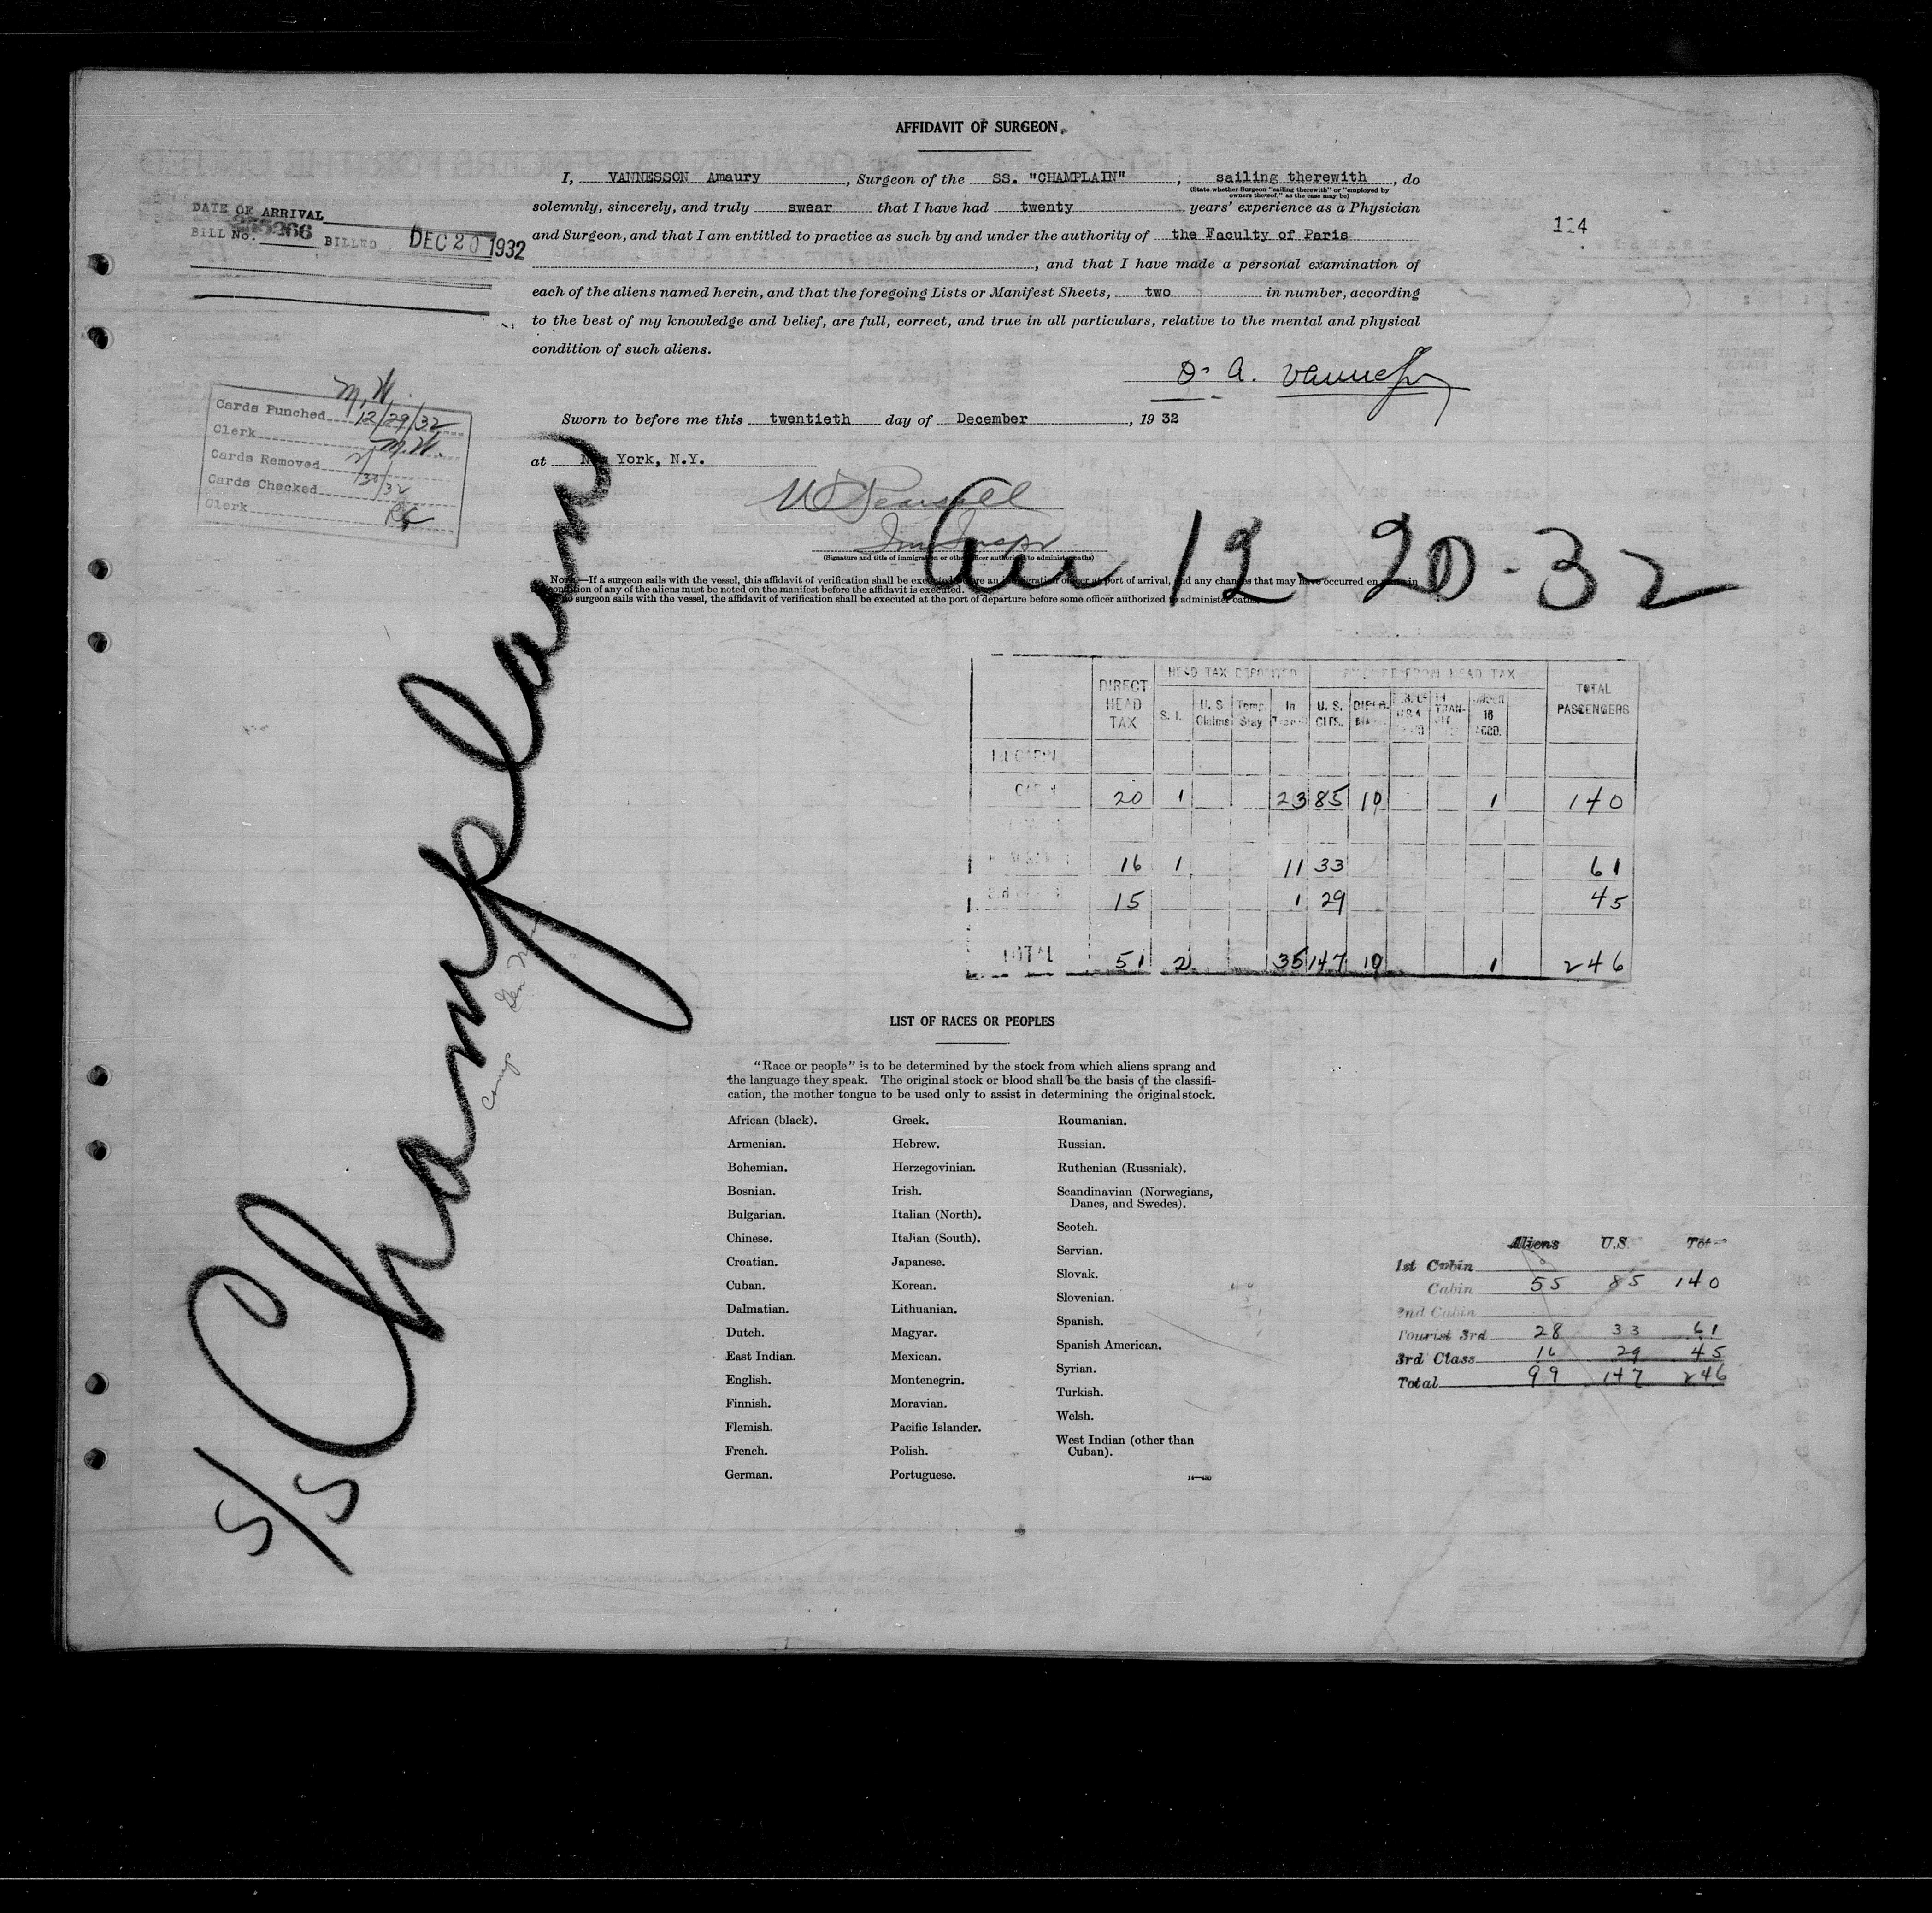 AFFIDAVIT OF SURGEON
I, VANNESSON Amaury, Surgeon of the SS. "CHAMPLAIN", sailing therewith, do
(State whether Surgeon "sailing therewith" or "employed by
owners thereof," as the case may be)
solemnly, sincerely, and truly swear that I have had twenty years' experience as a Physician
and Surgeon, and that I am entitled to practice as such by and under the authority of the Faculty of Paris
, and that I have made a personal examination of
each of the aliens named herein, and that the foregoing Lists or Manifest Sheets, two in number, according
to the best of my knowledge and belief, are full, correct, and true in all particulars, relative to the mental and physical
condition of such aliens.
DATE OF ARRIVAL
BILL No. BILLED DEC 20 1932
114
Cards Punched 12/29/32
Clerk M.W.
Cards Removed
Cards Checked
Clerk
Sworn to before me this twentieth day of December, 19 32
at New York, N.Y.
(Signature and title of immigration or other officer authorized to administer oaths)
12-20-32
NOTE.—If a surgeon sails with the vessel, this affidavit of verification shall be executed before an immigration officer at port of arrival, and any changes that may have occurred en route in
the condition of any of the aliens must be noted on the manifest before the affidavit is executed.
If no surgeon sails with the vessel, the affidavit of verification shall be executed at the port of departure before some officer authorized to administer oaths.
S/S Champlain
DIRECT HEAD TAX
HEAD TAX DEPOSITED
S. I. U. S Claims Temp. Stay In Transit
EXEMPT FROM HEAD TAX
U. S. CITS. DIPLO. UNDER 16 ACCD.
TOTAL PASSENGERS
1st CABIN
CABIN 20 1 23 85 10 1 140
16 1 11 33 61
15 1 29 45
TOTAL 51 2 35 147 10 1 246
LIST OF RACES OR PEOPLES
"Race or people" is to be determined by the stock from which aliens sprang and
the language they speak. The original stock or blood shall be the basis of the classifi-
cation, the mother tongue to be used only to assist in determining the original stock.
African (black).
Armenian.
Bohemian.
Bosnian.
Bulgarian.
Chinese.
Croatian.
Cuban.
Dalmatian.
Dutch.
East Indian.
English.
Finnish.
Flemish.
French.
German.
Greek.
Hebrew.
Herzegovinian.
Irish.
Italian (North).
Italian (South).
Japanese.
Korean.
Lithuanian.
Magyar.
Mexican.
Montenegrin.
Moravian.
Pacific Islander.
Polish.
Portuguese.
Roumanian.
Russian.
Ruthenian (Russniak).
Scandinavian (Norwegians,
Danes, and Swedes).
Scotch.
Servian.
Slovak.
Slovenian.
Spanish.
Spanish American.
Syrian.
Turkish.
Welsh.
West Indian (other than
Cuban).
14—430
Aliens U.S. Tot
1st Cabin
Cabin 55 85 140
2nd Cabin
Tourist 3rd 28 33 61
3rd Class 16 29 45
Total 99 147 246